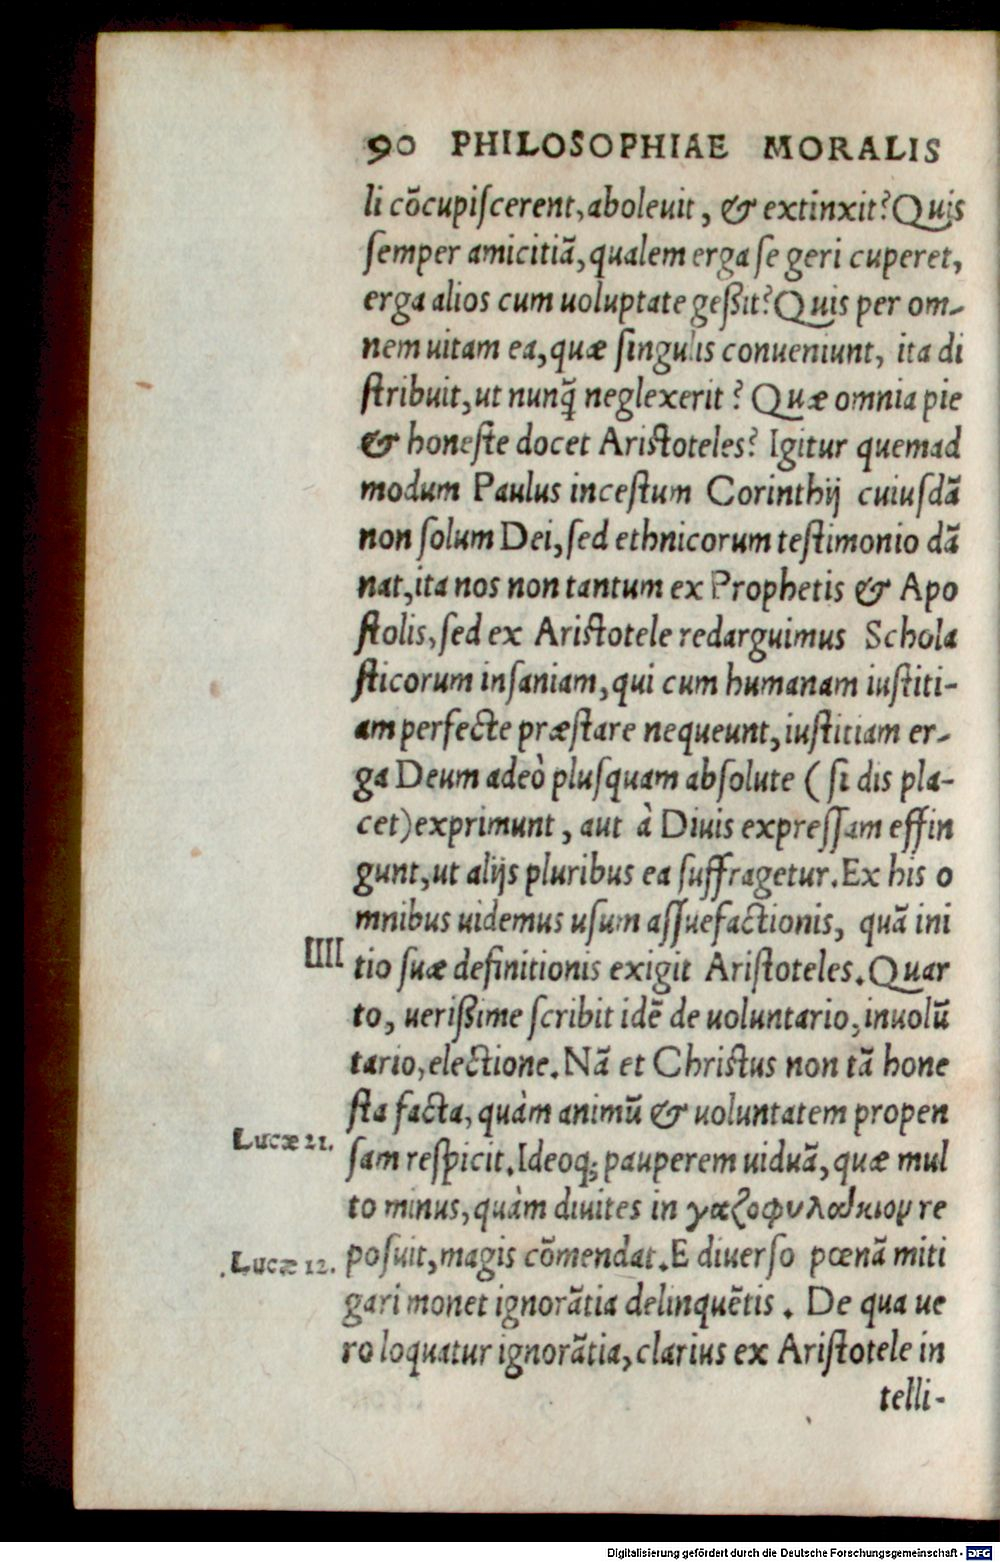 90 PHILOSOPHIAE MORALIS
li cõcupiſcerent, aboleuit, & extinxit? Quis
ſemper amicitiã, qualem erga ſe geri cuperet,
erga alios cum uoluptate geßit? Quis per om-
nem uitam ea, quæ ſingulis conueniunt, ita di
ſtribuit, ut nunq̃ neglexerit? Quæ omnia pie
& honeſte docet Ariſtoteles? Igitur quemad
modum Paulus inceſtum Corinthij cuiuſdã
non ſolum Dei, ſed ethnicorum teſtimonio dã
nat, ita nos non tantum ex Prophetis & Apo
ſtolis, ſed ex Ariſtotele redarguimus Schola
ſticorum inſaniam, qui cum humanam iuſtiti-
am perfecte præſtare nequeunt, iuſtitiam er-
ga Deum adeò pluſquam abſolute (ſi dis pla-
cet) exprimunt, aut à Diuis expreſſam effin
gunt, ut alijs pluribus ea ſuffragetur. Ex his o
mnibus uidemus uſum aſſuefactionis, quã ini
IIII tio ſuæ definitionis exigit Ariſtoteles. Quar
to, uerißime ſcribit idẽ de uoluntario, inuolũ
tario, electione. Nã et Chriſtus non tã hone
ſta facta, quàm animũ & uoluntatem propen
Lucæ 21. ſam reſpicit. Ideoq; pauperem uiduã, quæ mul
to minus, quàm diuites in γαζοφυλάκιον re
Lucæ 12. poſuit, magis cõmendat. E diuerſo pœnã miti
gari monet ignorãtia delinquẽtis. De qua ue
ro loquatur ignorãtia, clarius ex Ariſtotele in
telli-
Digitalisierung gefördert durch die Deutsche Forschungsgemeinschaft - DFG